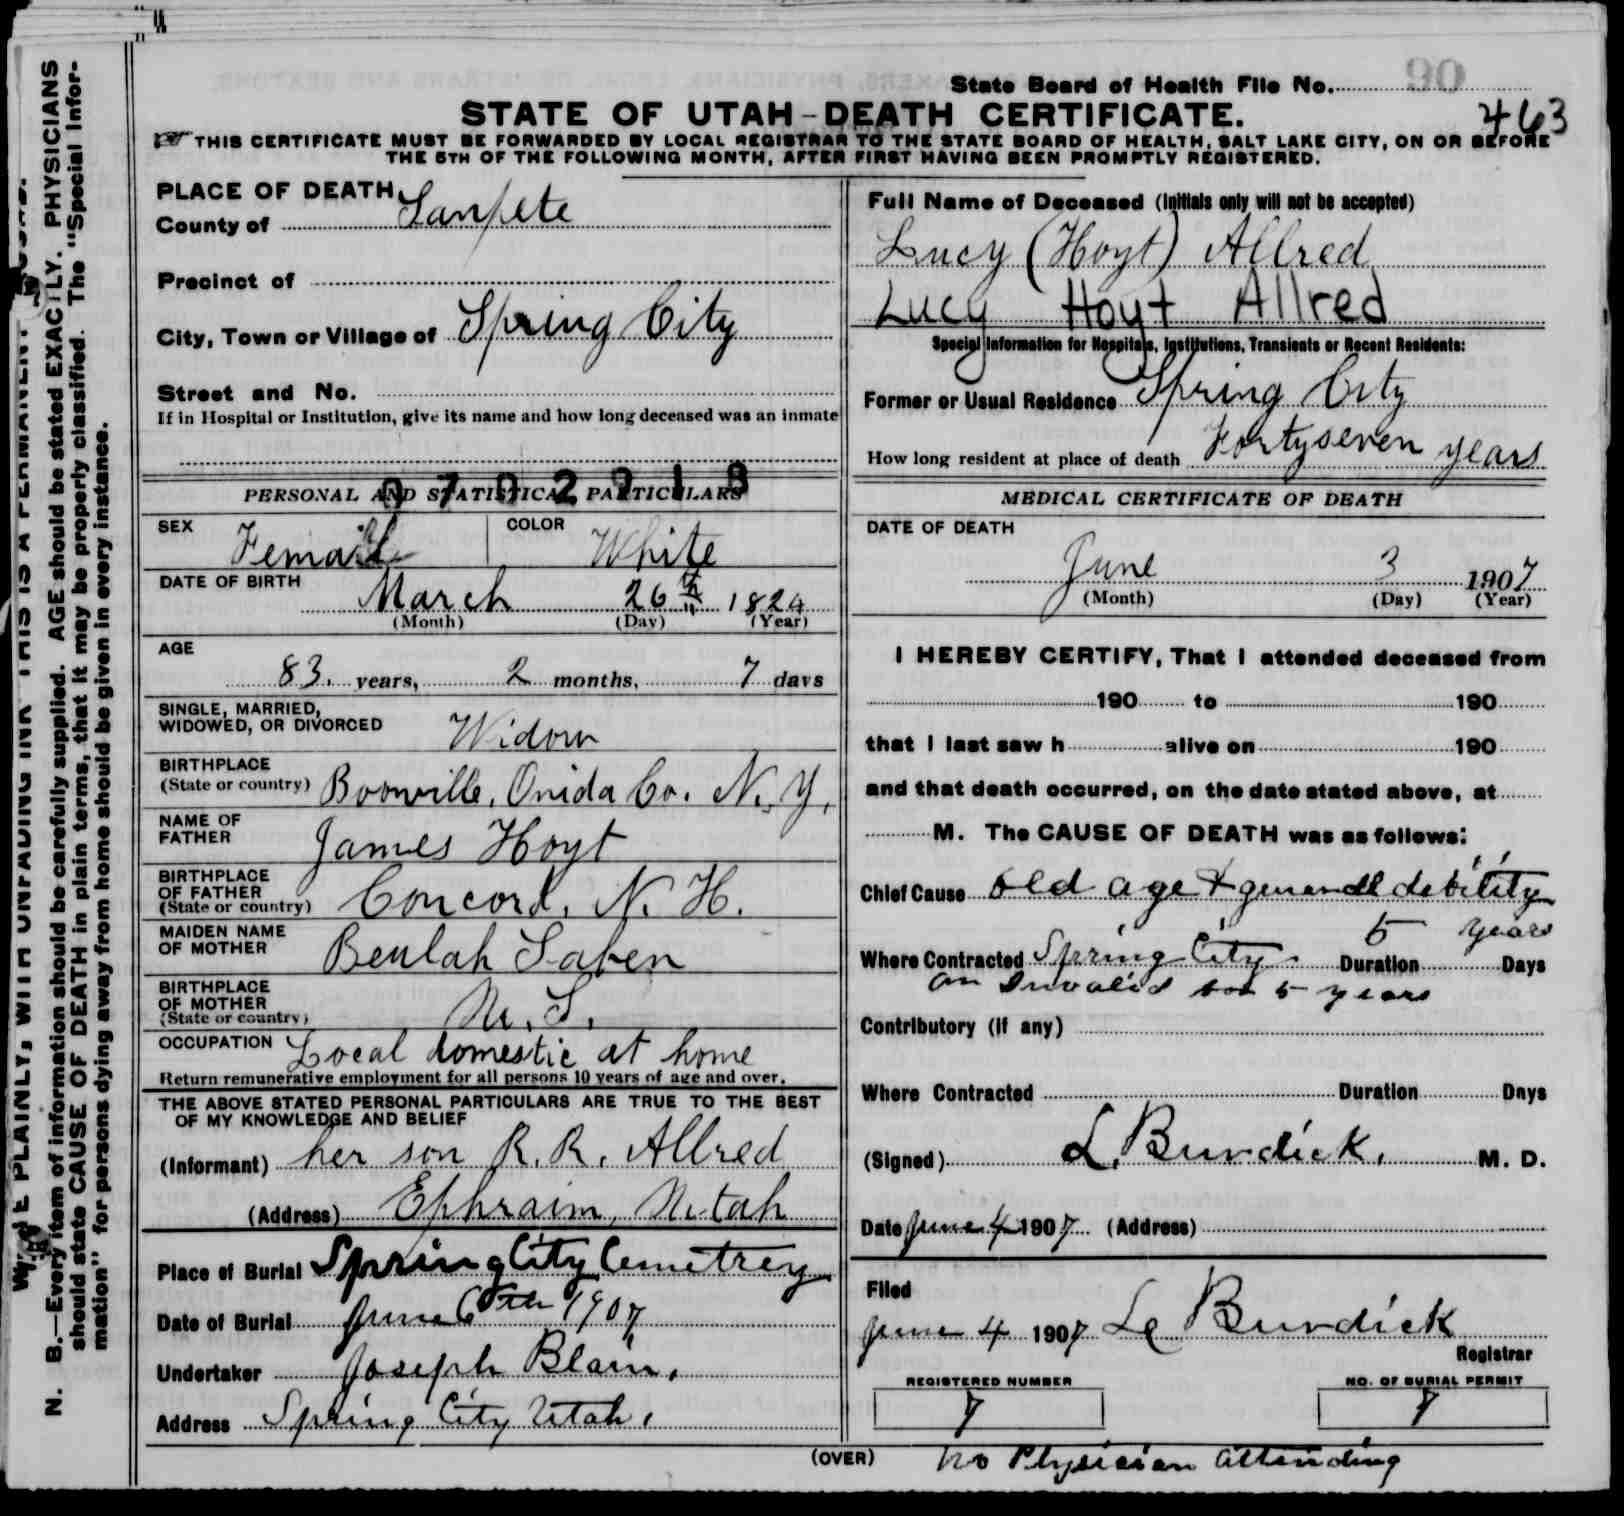 State Board of Health File No.
90
463
STATE OF UTAH-DEATH CERTIFICATE.
THIS CERTIFICATE MUST BE FORWARDED BY LOCAL REGISTRAR TO THE STATE BOARD OF HEALTH, SALT LAKE CITY, ON OR BEFORE
THE 5TH OF THE FOLLOWING MONTH, AFTER FIRST HAVING BEEN PROMPTLY REGISTERED.
PLACE OF DEATH
County of Sanpete
Precinct of
City, Town or Village of Spring City
Street and No.
If in Hospital or Institution, give its name and how long deceased was an inmate
PERSONAL AND STATISTICAL PARTICULARS
SEX Female COLOR White
DATE OF BIRTH March 26th 1824
(Month) (Day) (Year)
AGE
83 years, 2 months, 7 days
SINGLE, MARRIED,
WIDOWED, OR DIVORCED Widow
BIRTHPLACE
(State or country) Boonville, Onida Co. N. Y.
NAME OF
FATHER James Hoyt
BIRTHPLACE
OF FATHER
(State or country) Concord, N. H.
MAIDEN NAME
OF MOTHER Beulah Saben
BIRTHPLACE
OF MOTHER
(State or country) U. S.
OCCUPATION Local domestic at home
Return remunerative employment for all persons 10 years of age and over.
THE ABOVE STATED PERSONAL PARTICULARS ARE TRUE TO THE BEST
OF MY KNOWLEDGE AND BELIEF
(Informant) her son R. R. Allred
(Address) Ephraim, Utah
Place of Burial Spring City Cemetrey
Date of Burial June 6th 1907
Undertaker Joseph Blain.
Address Spring City Utah.
Full Name of Deceased (Initials only will not be accepted)
Lucy (Hoyt) Allred
Lucy Hoyt Allred
Special Information for Hospitals, Institutions, Transients or Recent Residents:
Former or Usual Residence Spring City
How long resident at place of death Fortyseven years
MEDICAL CERTIFICATE OF DEATH
DATE OF DEATH
June 3 1907
(Month) (Day) (Year)
I HEREBY CERTIFY, That I attended deceased from
190 to 190
that I last saw h alive on 190
and that death occurred, on the date stated above, at
M. The CAUSE OF DEATH was as follows:
Chief Cause old age & generall debility
5 years
Where Contracted Spring City Duration Days
an Invalid for 5 years
Contributory (if any)
Where Contracted Duration Days
(Signed) L. Burdick. M. D.
Date June 4 1907 (Address)
Filed
June 4 1907 L Burdick
Registrar
REGISTERED NUMBER
7
NO. OF BURIAL PERMIT
7
(OVER) no Physician attending
N. B.—Every item of information should be carefully supplied. AGE should be stated EXACTLY. PHYSICIANS
should state CAUSE OF DEATH in plain terms, that it may be properly classified. The "Special Infor-
mation" for persons dying away from home should be given in every instance.